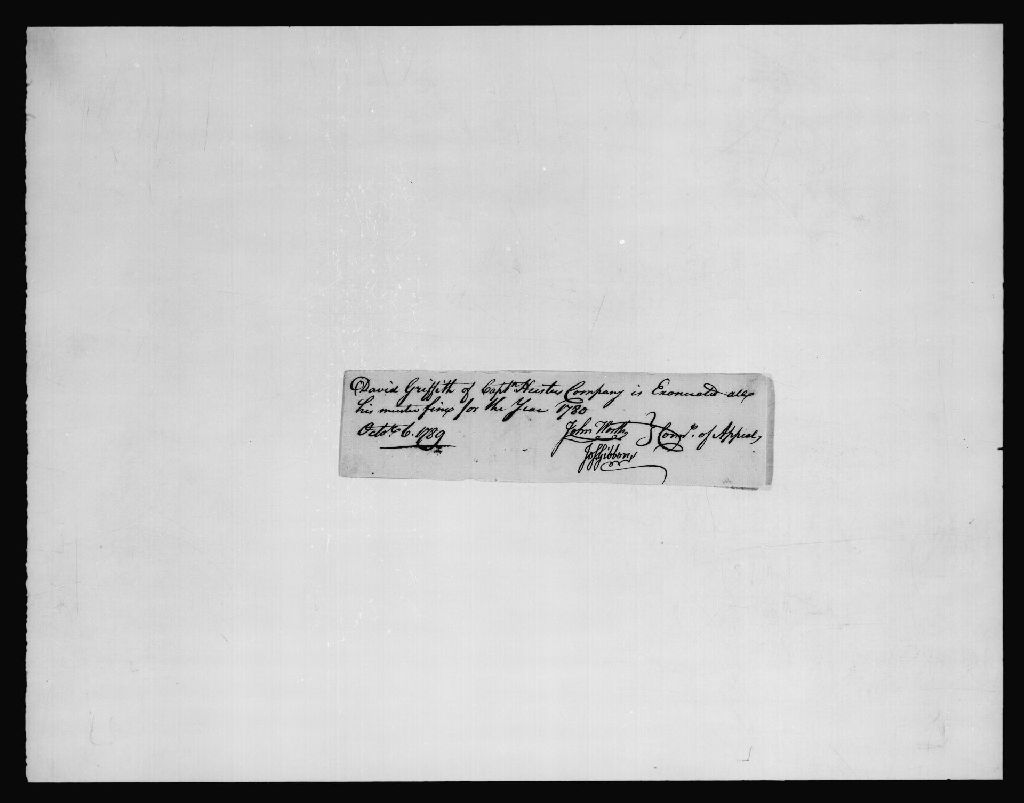 David Griffith of Capt.n Heisters Company is Exonerated all
his muster fines for the Year 1780
Octobr 6. 1789
John Worth } Comrs. of Appeal,
Jos Gibbons